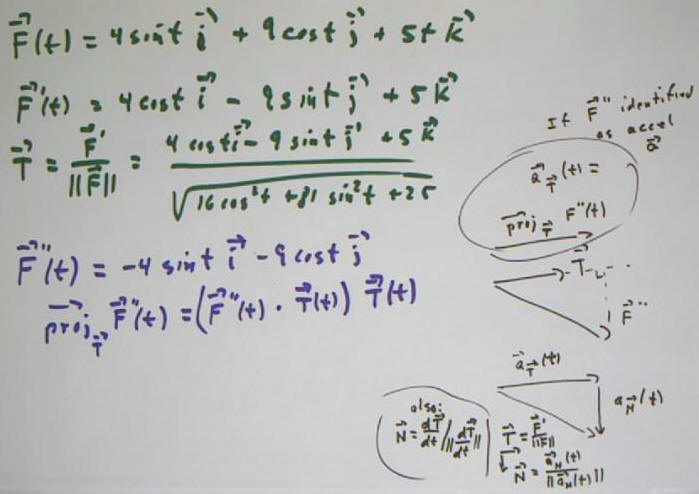 F⃗(t) = 4 sin t i⃗ + 9 cos t j⃗ + 5t k⃗
F⃗'(t) = 4 cos t i⃗ - 9 sin t j⃗ + 5 k⃗
T⃗ = F⃗' / ||F⃗'|| = (4 cos t i⃗ - 9 sin t j⃗ + 5 k⃗) / √(16 cos² t + 81 sin² t + 25)
F⃗''(t) = -4 sin t i⃗ - 9 cos t j⃗
proj_T⃗ F⃗''(t) = (F⃗''(t) · T⃗(t)) T⃗(t)
If F⃗'' identified
as accel
a⃗
a⃗_T⃗(t) =
proj_T⃗ F''(t)
T⃗
F⃗''
a⃗_T⃗(t)
a_N⃗(t)
also:
N⃗ = dT⃗/dt / ||dT⃗/dt||
T⃗ = F⃗' / ||F⃗'||
N⃗ = a⃗_N(t) / ||a⃗_N(t)||